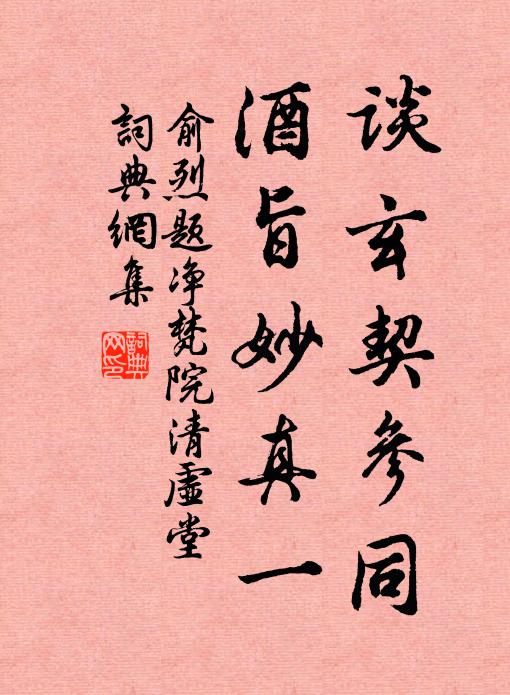 談玄契參同
酒旨妙真一
俞烈題净梵院清虛堂
詞典網集
詞典
网印